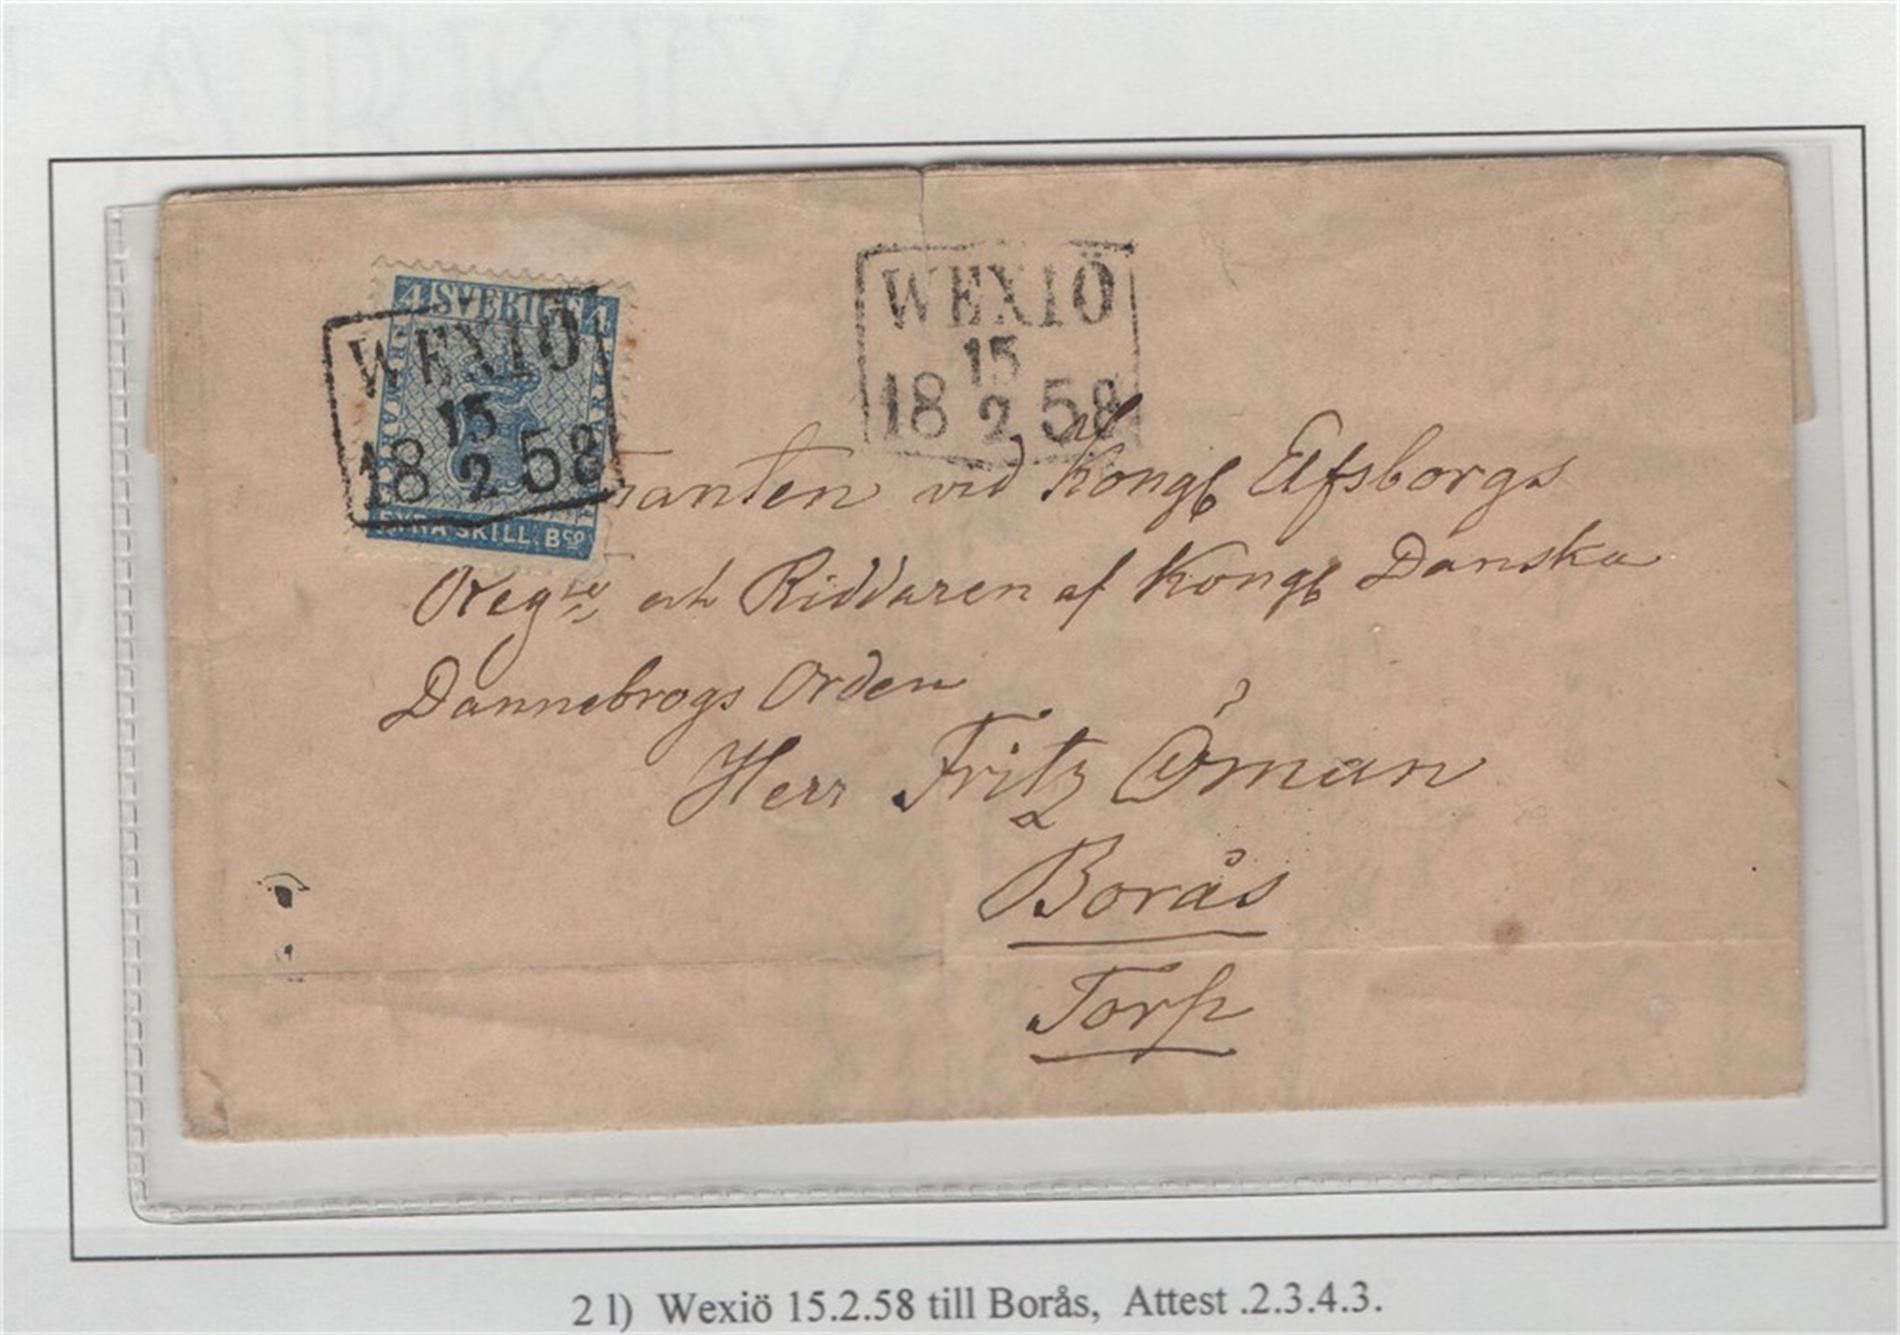 ARKIV
4 SVERIGE 4
FYRA SKILL. Bco
WEXIÖ
15
18 2 58
WEXIÖ
15
18 2 58
vid Kongl Elfsborgs
Regte och Riddaren af Kongl Danska
Dannebrogs Orden
Herr Fritz Öman
Borås
Torp
2 l) Wexiö 15.2.58 till Borås, Attest .2.3.4.3.